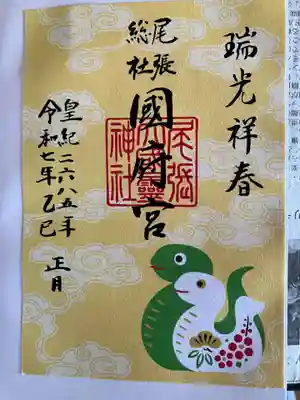 瑞光祥春
尾張
総社
國府宮
尾張
大國霊
神社
皇紀二六八五年
令和七年乙巳
正月